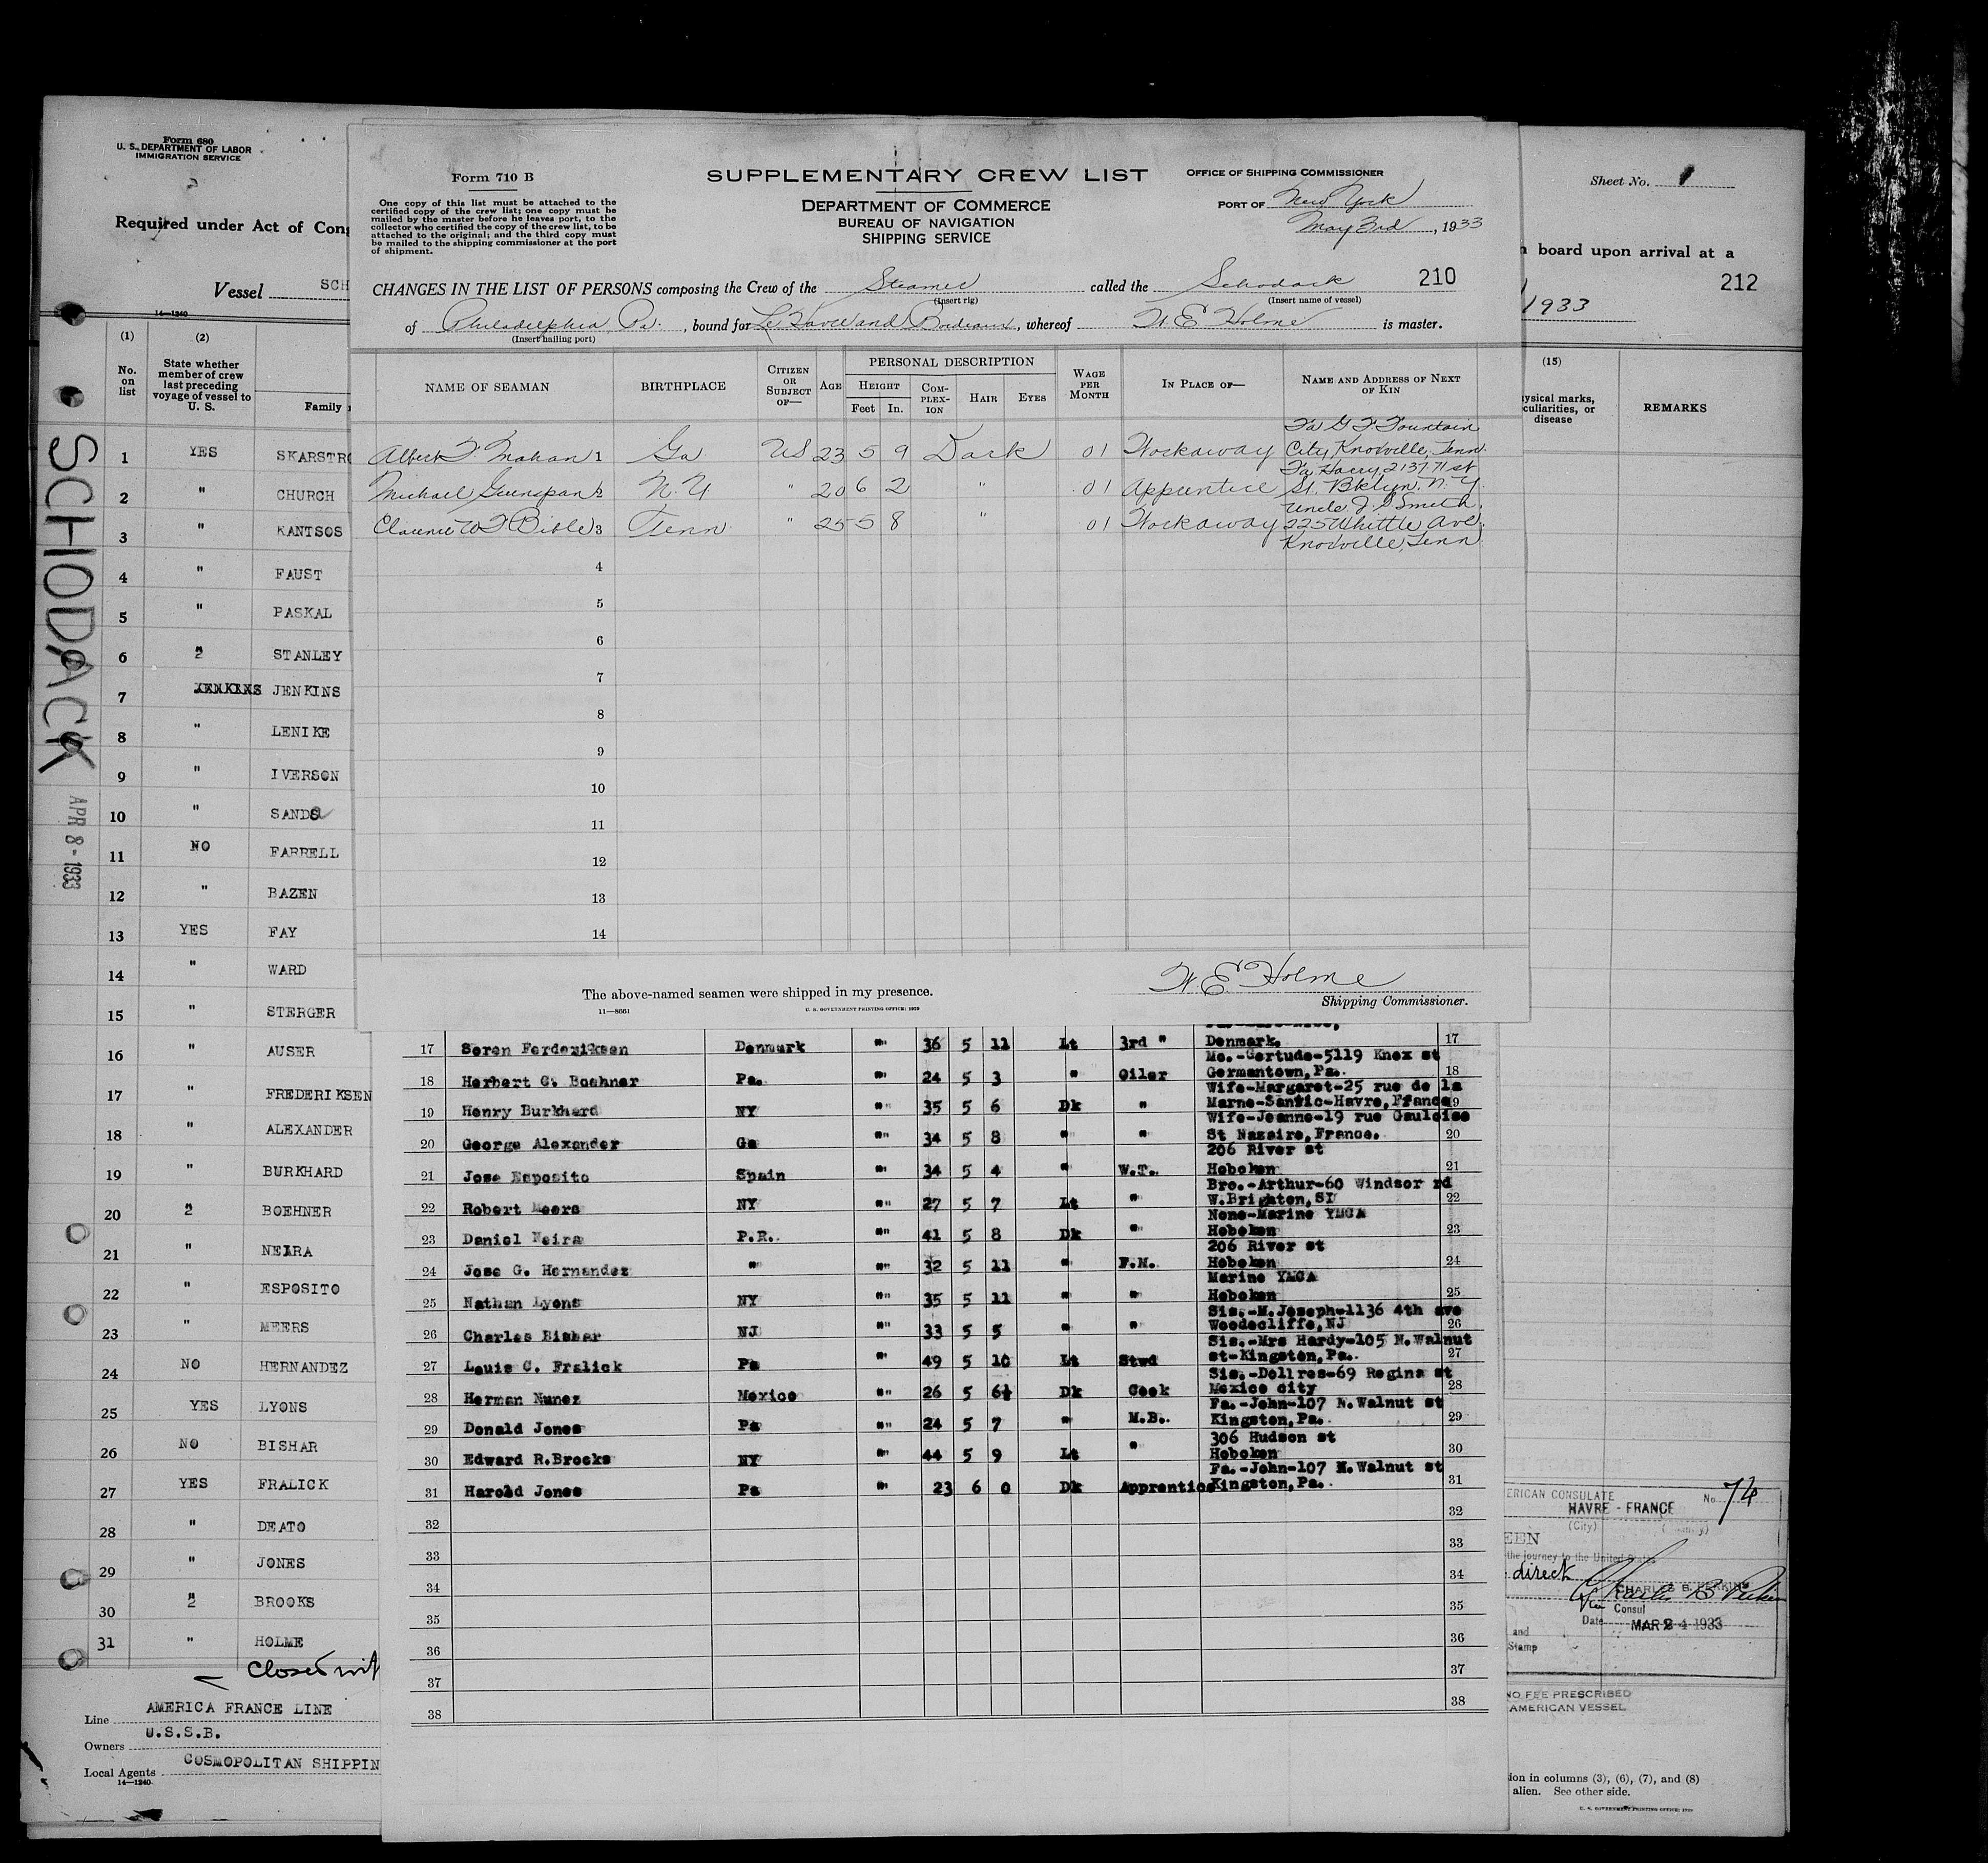 Form 680
U. S. DEPARTMENT OF LABOR
IMMIGRATION SERVICE
Required under Act of Cong
Vessel SCH
14—1240
(1) (2)
No. on list
State whether member of crew last preceding voyage of vessel to U. S.
Family
1 YES SKARSTRO
2 " CHURCH
3 " KANTSOS
4 " FAUST
5 " PASKAL
6 " STANLEY
7 JENKINS JENKINS
8 " LENIKE
9 " IVERSON
10 " SANDS
11 NO FARRELL
12 " BAZEN
13 YES FAY
14 " WARD
15 " STERGER
16 " AUSER
17 " FREDERIKSEN
18 " ALEXANDER
19 " BURKHARD
20 " BOEHNER
21 " NEIRA
22 " ESPOSITO
23 " MEERS
24 NO HERNANDEZ
25 YES LYONS
26 NO BISHAR
27 YES FRALICK
28 " DEATO
29 " JONES
30 " BROOKS
31 " HOLME
Closed wit
Line AMERICA FRANCE LINE
Owners U.S.S.B.
Local Agents COSMOPOLITAN SHIPPIN
14—1240
SCHODACK
APR 8 - 1933
Form 710 B
One copy of this list must be attached to the
certified copy of the crew list; one copy must be
mailed by the master before he leaves port, to the
collector who certified the copy of the crew list, to be
attached to the original; and the third copy must
be mailed to the shipping commissioner at the port
of shipment.
SUPPLEMENTARY CREW LIST
DEPARTMENT OF COMMERCE
BUREAU OF NAVIGATION
SHIPPING SERVICE
OFFICE OF SHIPPING COMMISSIONER
PORT OF New York
May 3rd, 1933
CHANGES IN THE LIST OF PERSONS composing the Crew of the Steamer called the Schodack 210
(Insert rig) (Insert name of vessel)
of Philadelphia Pa., bound for Le Havre and Bordeaux, whereof W E Holme is master.
(Insert hailing port)
NAME OF SEAMAN
BIRTHPLACE
CITIZEN OR SUBJECT OF—
AGE
PERSONAL DESCRIPTION
HEIGHT
Feet In.
COMPLEXION
HAIR
EYES
WAGE PER MONTH
IN PLACE OF—
NAME AND ADDRESS OF NEXT OF KIN
Albert F. Mahan 1 Ga US 23 5 9 Dark 01 Workaway Fa G F Fountain
City, Knoxville, Tenn.
Michael Greenspan 2 N.Y " 20 6 2 " .01 Apprentice Fa Harry, 2137 71 st
St. Bklyn. N.Y.
Clarence W F Bible 3 Tenn " 25 5 8 " 01 Workaway Uncle J. G Smith,
225 Whittle Ave.
Knoxville, Tenn
4
5
6
7
8
9
10
11
12
13
14
W E Holme
The above-named seamen were shipped in my presence.
Shipping Commissioner.
11—8661
U. S. GOVERNMENT PRINTING OFFICE: 1929
17 Soren Ferderiksen Denmark " 36 5 11 Lt 3rd " Denmark. 17
18 Herbert C. Boehner Pa. " 24 5 3 " Oiler Mo.-Gertude-5119 Knox st
Germantown, Pa. 18
19 Henry Burkhard NY " 35 5 6 Dk " Wife-Margaret-25 rue de la
Marne-Sanvic-Havre, France 19
20 George Alexander Ga " 34 5 8 " " Wife-Jeanne-19 rue Gauloise
St Nazaire, France. 20
21 Jose Esposito Spain " 34 5 4 " W.T. 206 River st
Hoboken 21
22 Robert Meers NY " 27 5 7 Lt " Bro.-Arthur-60 Windsor rd
W.Brighton, SI 22
23 Daniel Neira P.R. " 41 5 8 Dk " None-Marine YMCA
Hoboken 23
24 Jose G. Hernandez " " 32 5 11 " F.M. 206 River st
Hoboken 24
25 Nathan Lyons NY " 35 5 11 " " Marine YMCA
Hoboken 25
26 Charles Bishar NJ " 33 5 5 " " Sis.-M.Joseph-1136 4th ave
Woodecliffe, NJ 26
27 Louis C. Fralick Pa " 49 5 10 Lt Stwd Sis.-Mrs Hardy-105 N.Walnut
st-Kingston, Pa. 27
28 Herman Nunez Mexico " 26 5 6½ Dk Cook Sis.-Dollres-69 Regina st
Mexico city 28
29 Donald Jones Pa " 24 5 7 " M.B. Fa.-John-107 N.Walnut st
Kingston, Pa. 29
30 Edward R.Brooks NY " 44 5 9 Lt " 306 Hudson st
Hoboken 30
31 Harold Jones Pa " 23 6 0 Dk Apprentice Fa.-John-107 N.Walnut st
Kingston, Pa. 31
32 32
33 33
34 34
35 35
36 36
37 37
38 38
Sheet No. 1
board upon arrival at a
212
1933
(15)
ysical marks,
culiarities, or
disease
REMARKS
ERICAN CONSULATE No. 74
HAVRE - FRANCE
(City) (Country)
EEN
the journey to the United States
direct
CHARLES B. PERKINS
Vice Consul
Date MAR 24 1933
and
Stamp
NO FEE PRESCRIBED
AMERICAN VESSEL
ion in columns (3), (6), (7), and (8)
alien. See other side.
U. S. GOVERNMENT PRINTING OFFICE: 1929